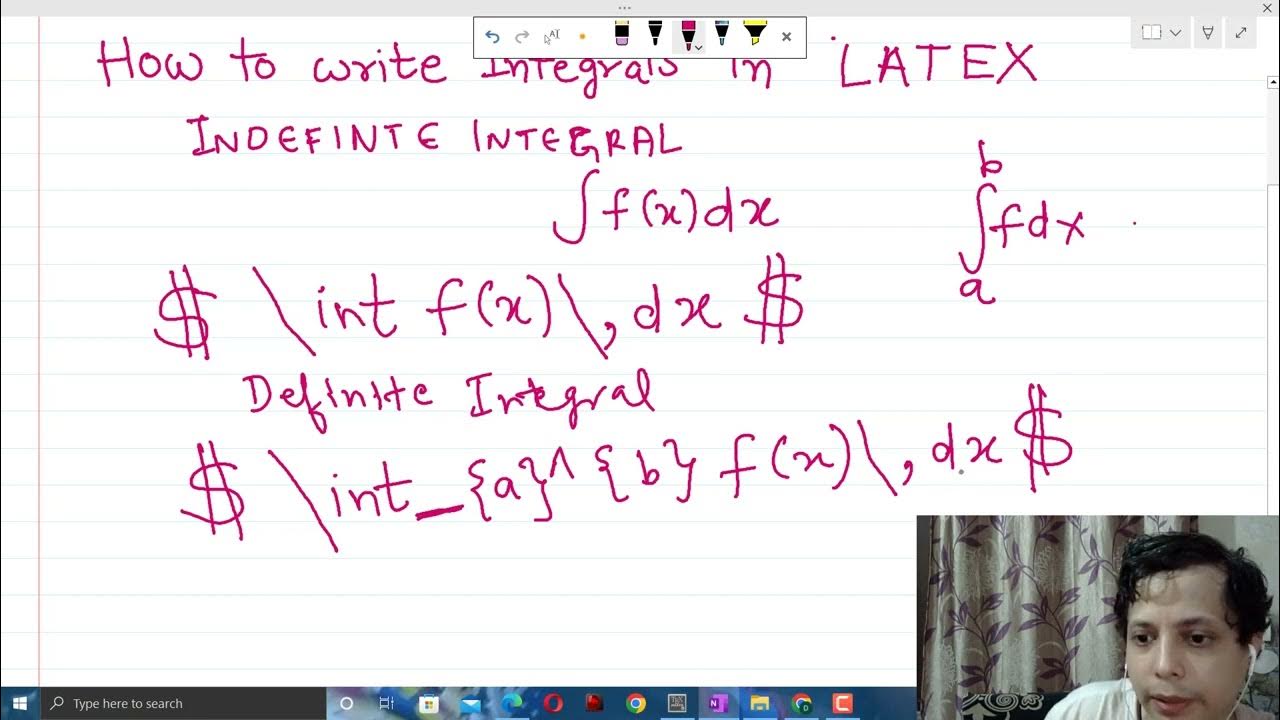 How to write Integrals in LATEX
INDEFINTE INTEGRAL
∫ f(x)dx
b
∫ f dx
a
$ \int f(x)\, dx $
Definite Integral
$ \int_{a}^{b} f(x)\, dx $
Type here to search